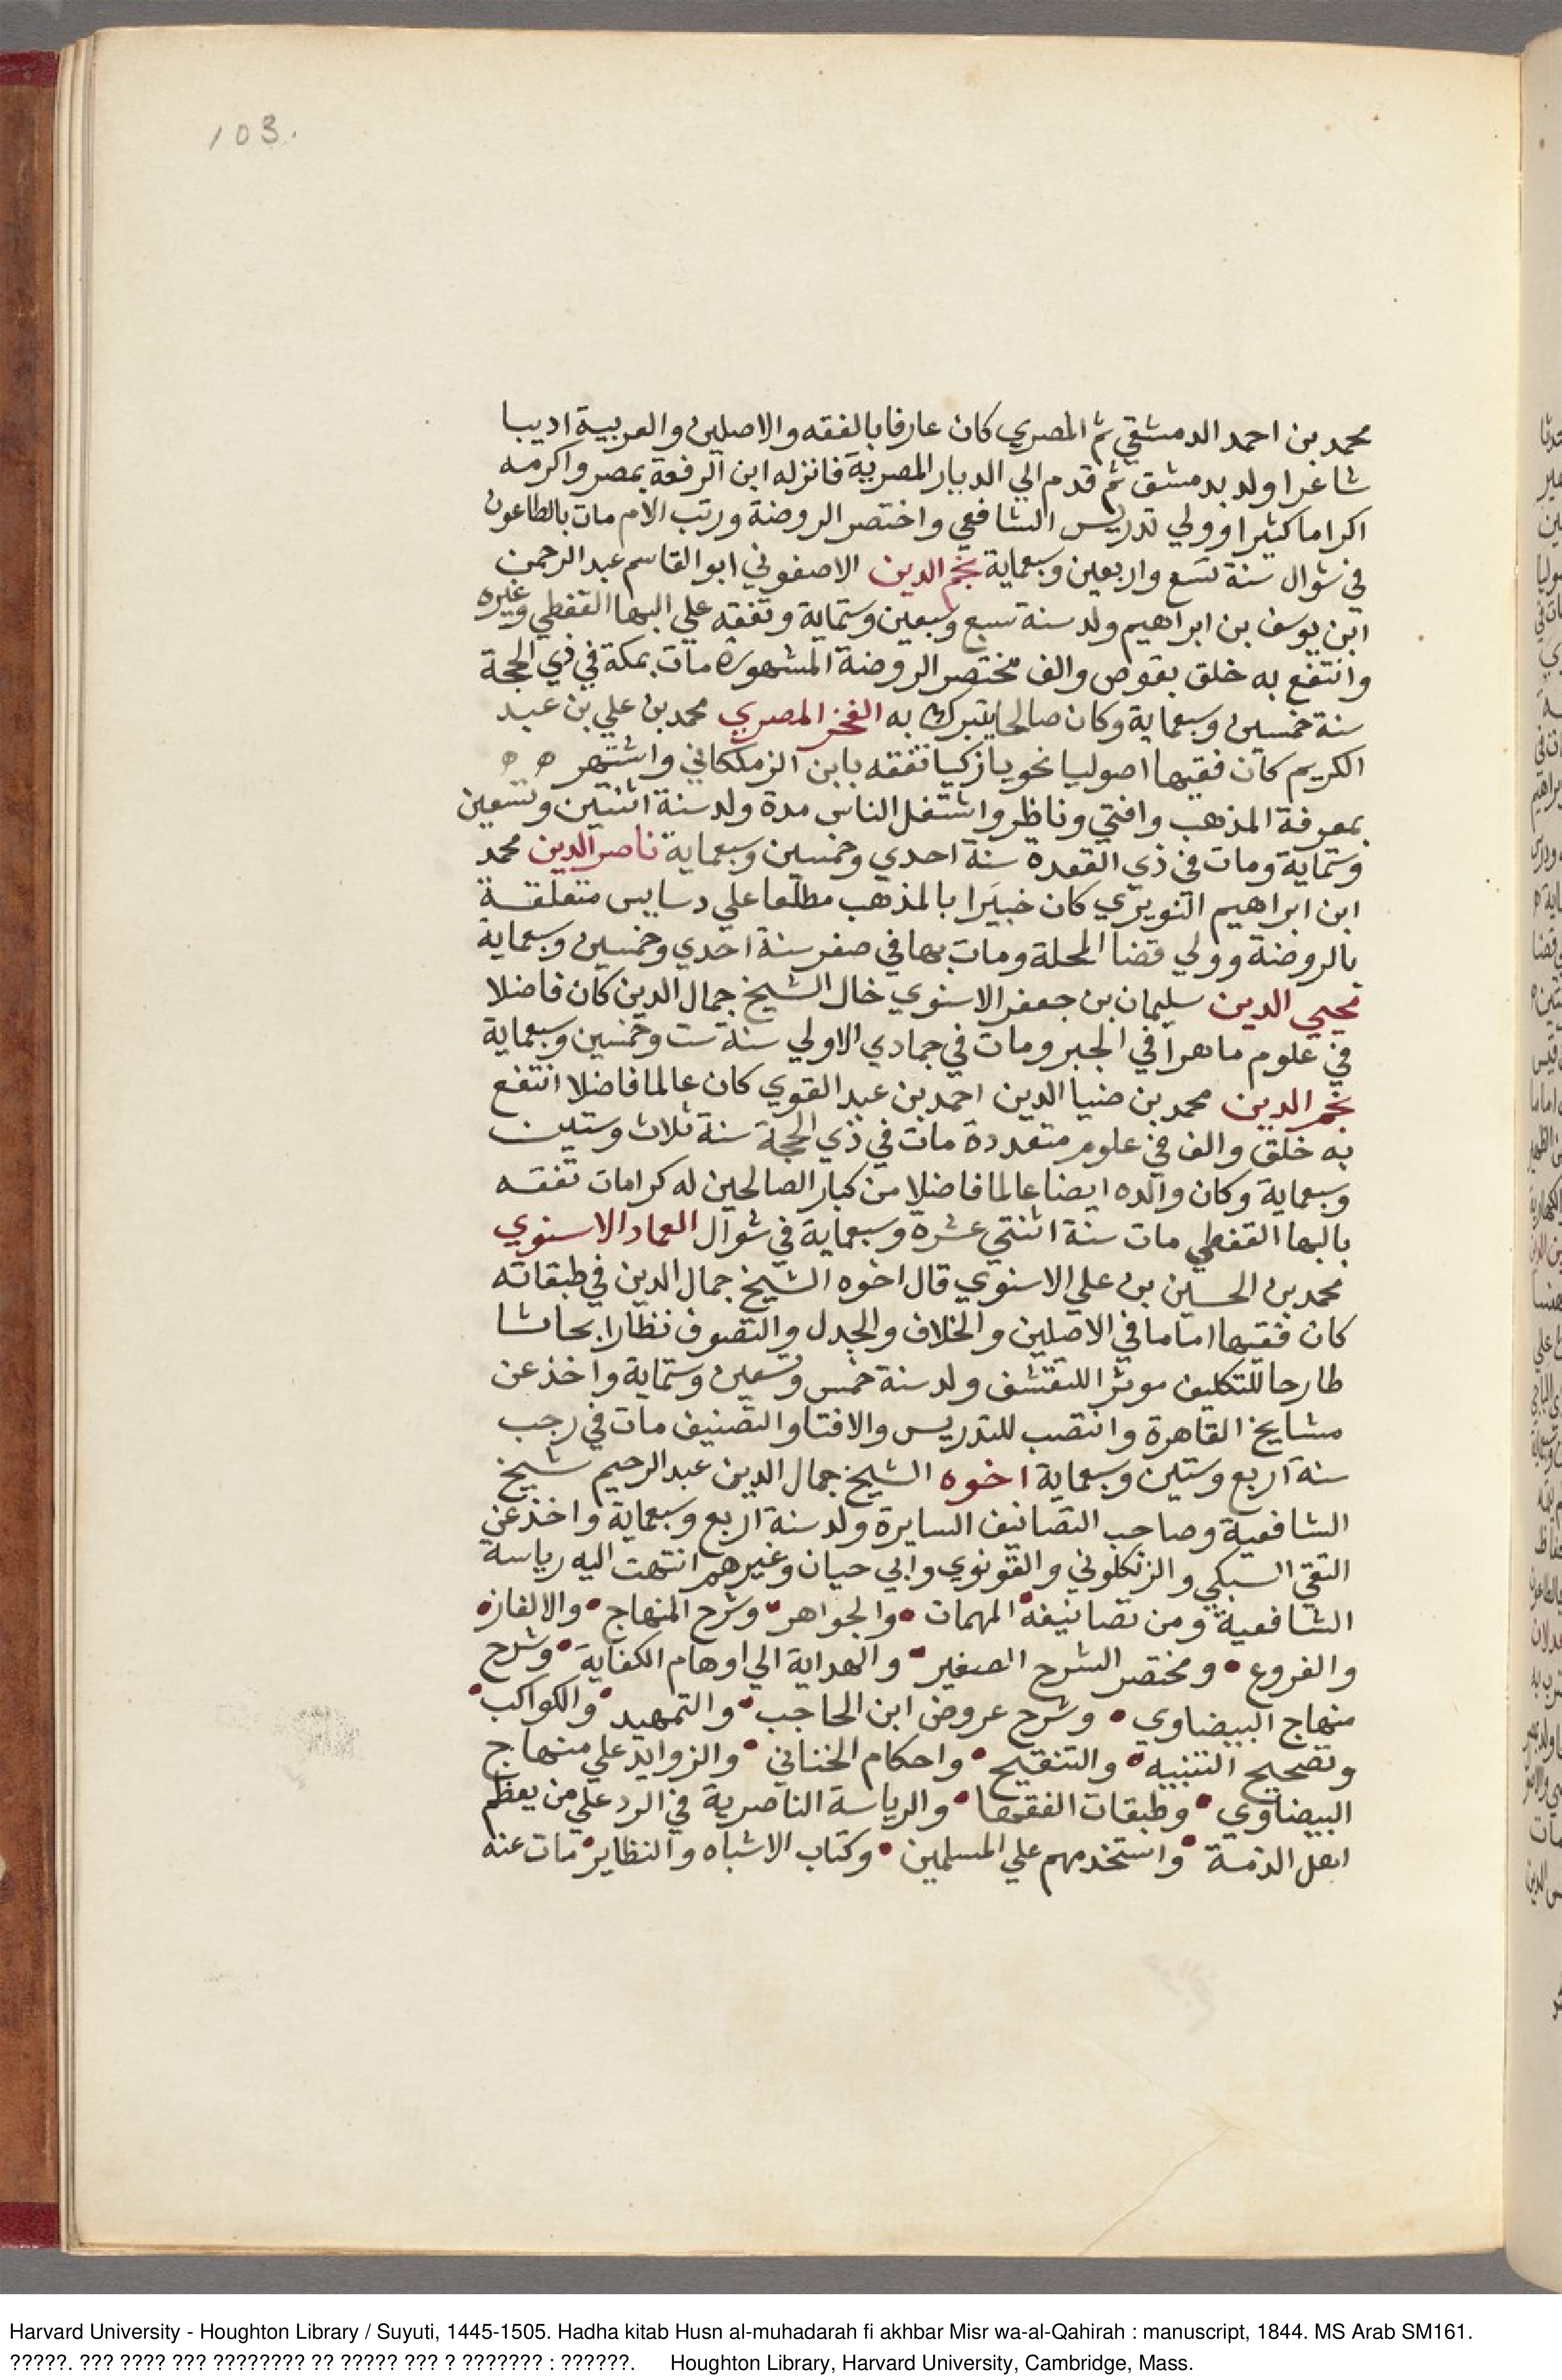 103.
محمد بن احمد الدمشقي ثم المصري كان عارفا بالفقه والاصلين والعربية اديبا
شاعرا ولد بدمشق ثم قدم الي الديار المصرية فانزله ابن الرفعة بمصر واكرمه
اكراما كثيرا وولي تدريس الشافعي واختصر الروضة ورتب الام مات بالطاعون
في شوال سنة تسع واربعين وسبعماية نجم الدين الاصفوني ابو القاسم عبد الرحمن
ابن يوسف بن ابراهيم ولد سنة سبع وسبعين وستماية وتفقه علي البها القفطي وغيره
وانتفع به خلق بقوص والف مختصر الروضة المشهورة مات بمكة في ذي الحجة
سنة خمسين وسبعماية وكان صالحا يتبرك به الفخر المصري محمد بن علي بن عبد
الكريم كان فقيها اصوليا نحويا زكيا تفقه بابن الزملكاني واشتهر ه ه
بمعرفة المذهب وافتي وناظر واشتغل الناس مدة ولد سنة اثنتين وتسعين
وستماية ومات في ذي القعدة سنة احدي وخمسين وسبعماية ناصر الدين محمد
ابن ابراهيم النويري كان خبيرا بالمذهب مطلعا علي دسايس متعلقة
بالروضة وولي قضا المحلة ومات بها في صفر سنة احدي وخمسين وسبعماية
محيي الدين سليمان بن جعفر الاسنوي خال الشيخ جمال الدين كان فاضلا
في علوم ماهرا في الجبر ومات في جمادي الاولي سنة ست وخمسين وسبعماية
نجم الدين محمد بن ضيا الدين احمد بن عبد القوي كان عالما فاضلا انتفع
به خلق والف في علوم متعددة مات في ذي الحجة سنة ثلاث وستين
وسبعماية وكان والده ايضا عالما فاضلا من كبار الصالحين له كرامات تفقه
بالبها القفطي مات سنة اثنتي عشرة وسبعماية في شوال العماد الاسنوي
محمد بن الحسين بن علي الاسنوي قال اخوه الشيخ جمال الدين في طبقاته
كان فقيها اماما في الاصلين والخلاف والجدل والتصوف نظارا بحاثا
طارحا للتكليف موثرا للتقشف ولد سنة خمس وتسعين وستماية واخذ عن
مشايخ القاهرة وانتصب للتدريس والافتا والتصنيف مات في رجب
سنة اربع وستين وسبعماية اخوه الشيخ جمال الدين عبد الرحيم شيخ
الشافعية وصاحب التصانيف السايرة ولد سنة اربع وسبعماية واخذ عن
التقي السبكي والزنكلوني والقونوي وابي حيان وغيرهم انتهت اليه رياسة
الشافعية ومن تصانيفه المهمات والجواهر وشرح المنهاج والالغاز
والفروع ومختصر الشرح الصغير والهداية الي اوهام الكفاية وشرح
منهاج البيضاوي وشرح عروض ابن الحاجب والتمهيد والكواكب
وتصحيح التنبيه والتنقيح واحكام الخناثي والزوايد علي منهاج
البيضاوي وطبقات الفقها والرياسة الناصرية في الرد علي من يعظم
اهل الذمة واستخدمهم علي المسلمين وكتاب الاشباه والنظاير مات عنه
Harvard University - Houghton Library / Suyuti, 1445-1505. Hadha kitab Husn al-muhadarah fi akhbar Misr wa-al-Qahirah : manuscript, 1844. MS Arab SM161.
?????. ??? ???? ??? ???????? ?? ????? ??? ? ??????? : ??????. Houghton Library, Harvard University, Cambridge, Mass.